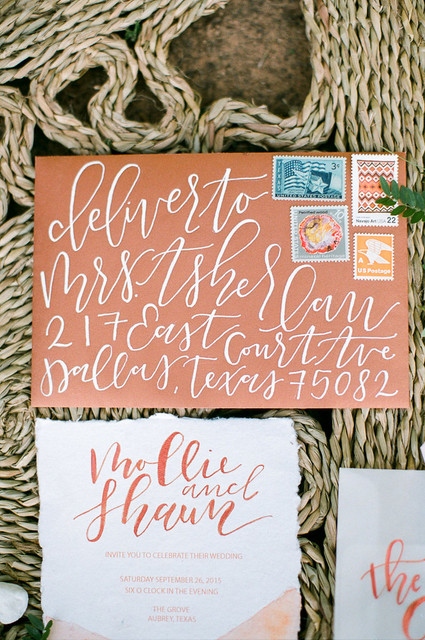 deliver to
mrs. Asher law
217 East Court Ave
Dallas, Texas 75082
3¢
UNITED STATES POSTAGE
Navajo Art USA 22
A
US Postage
mollie
and
shaun
INVITE YOU TO CELEBRATE THEIR WEDDING
SATURDAY SEPTEMBER 26, 2015
SIX O CLOCK IN THE EVENING
THE GROVE
AUBREY, TEXAS
the